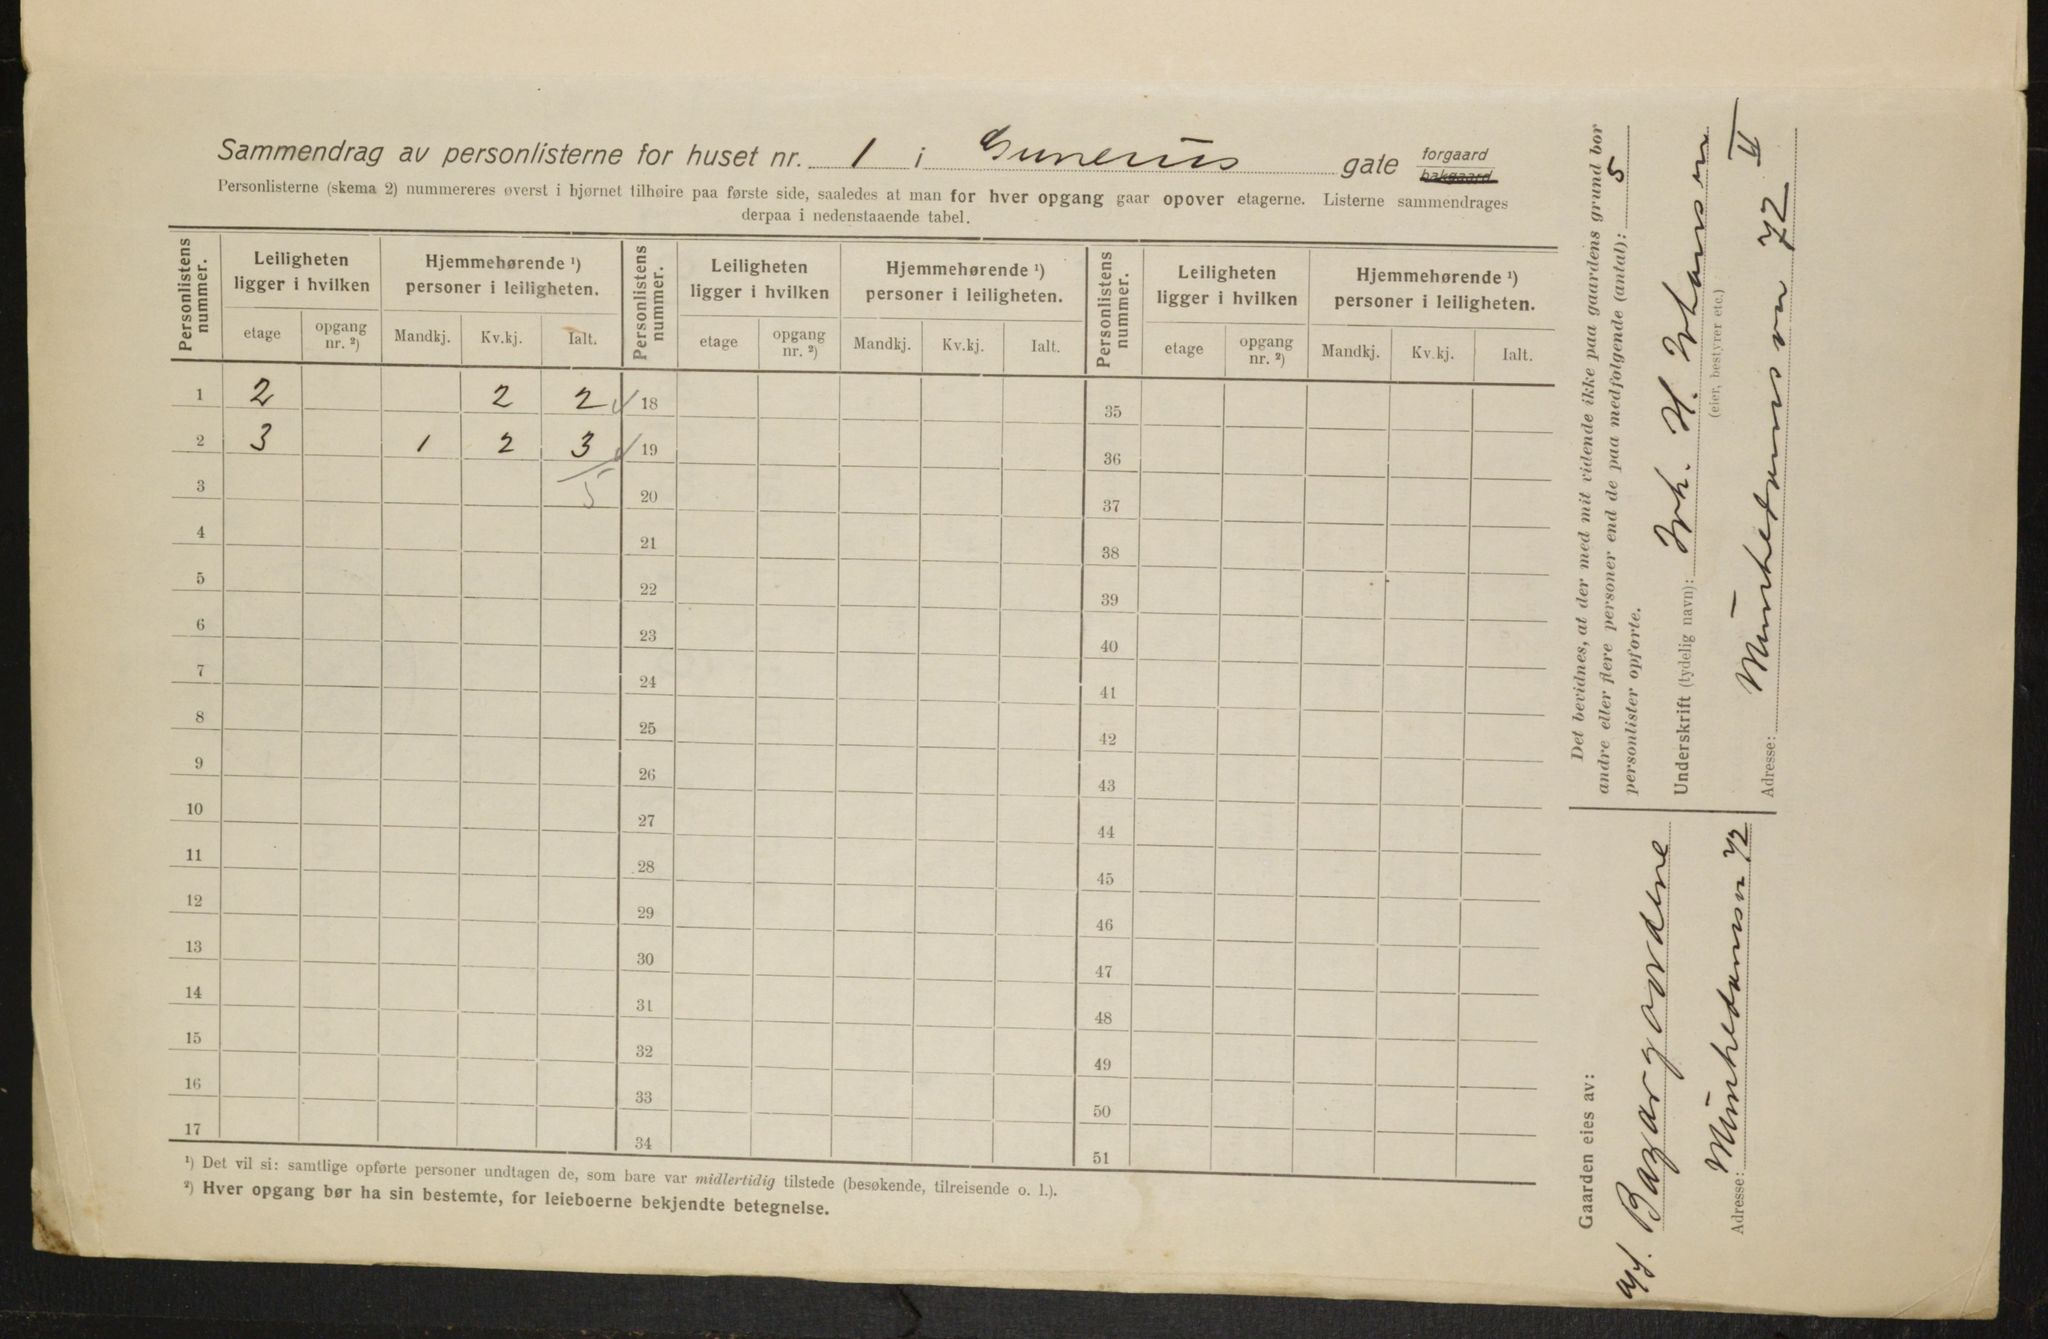 Sammendrag av personlisterne for huset nr. 1 i Gunerius gate forgaard
bakgaard
Personlisterne (skema 2) nummereres øverst i hjørnet tilhøire paa første side, saaledes at man for hver opgang gaar opover etagerne. Listerne sammendrages
derpaa i nedenstaaende tabel.
Personlistens nummer. Leiligheten ligger i hvilken Hjemmehørende ¹) personer i leiligheten. Personlistens nummer. Leiligheten ligger i hvilken Hjemmehørende ¹) personer i leiligheten. Personlistens nummer. Leiligheten ligger i hvilken Hjemmehørende ¹) personer i leiligheten.
etage opgang nr. ²) Mandkj. Kv.kj. Ialt. etage opgang nr. ²) Mandkj. Kv.kj. Ialt. etage opgang nr. ²) Mandkj. Kv.kj. Ialt.
1 2 2 2 18 35
2 3 1 2 3 19 36
3 5 20 37
4 21 38
5 22 39
6 23 40
7 24 41
8 25 42
9 26 43
10 27 44
11 28 45
12 29 46
13 30 47
14 31 48
15 32 49
16 33 50
17 34 51
¹) Det vil si: samtlige opførte personer undtagen de, som bare var midlertidig tilstede (besøkende, tilreisende o. l.).
²) Hver opgang bør ha sin bestemte, for leieboerne bekjendte betegnelse.
Det bevidnes, at der med mit vidende ikke paa gaardens grund bor
andre eller flere personer end de paa medfølgende (antal): 5
personlister opførte.
Underskrift (tydelig navn): Joh. H. Johansen
(eier, bestyrer etc.)
Adresse: Munkedamsvn 72 II
Gaarden eies av:
A/S. Bazargaardene
Adresse: Munkedamsvn 72